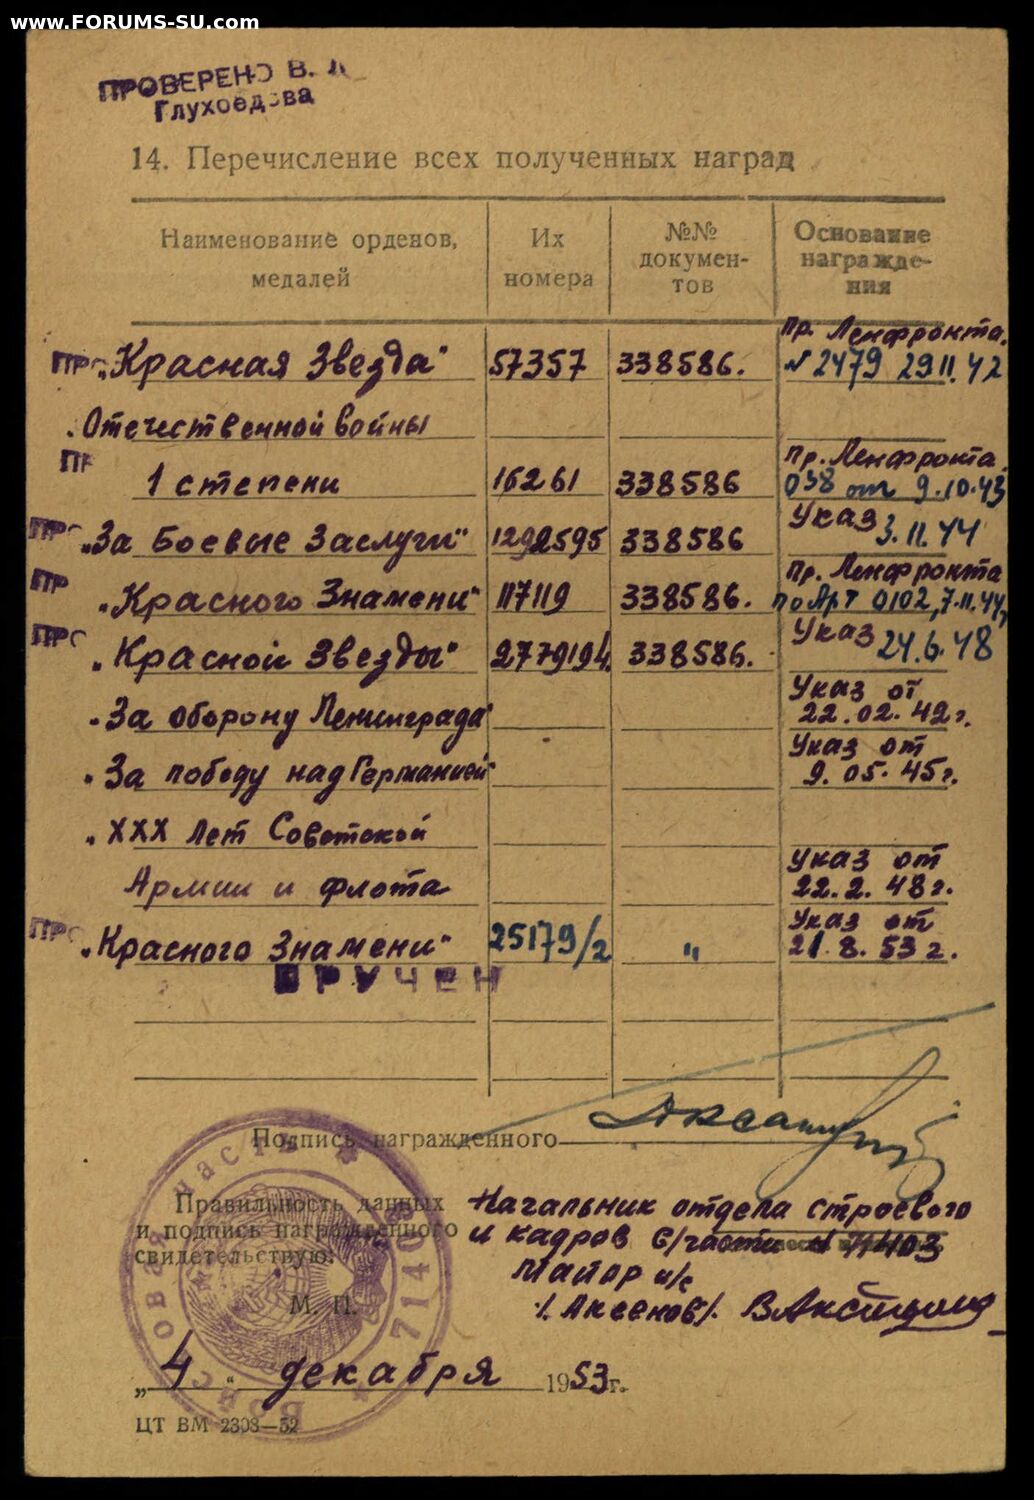 www.FORUMS-SU.com
ПРОВЕРЕНО В.
Глухоедова
14. Перечисление всех полученных наград
Наименование орденов, медалей
Их номера
№№ докумен-
тов
Основание
награжде-
ния
Пр. Ленфронта.
ПРО „Красная Звезда" 57357 338586. №2479 29.11.42
„Отечественной войны
ПР 1 степени 16261 338586 Пр. Ленфронта
038 от 9.10.43
ПРО „За Боевые Заслуги" 1292595 338586 Указ 3.11.44
ПР „Красного Знамени" 117119 338586. Пр. Ленфронта
по Арт 0102, 7.11.44,
ПРО „Красной Звезды" 2779194. 338586. Указ 24.6.48
„За оборону Ленинграда" Указ от
22.02.42г.
„За победу над Германией" Указ от
9.05.45г.
„XXX лет Советской
Армии и флота Указ от
22.2.48г.
ПРО „Красного Знамени" 25179/2 „ Указ от
21.8.53г.
ВРУЧЕН
Подпись награжденного
Правильность данных
и подпись награжденного
свидетельствую:
М. П.
Войсковая часть 71403
Начальник отдела строевого
и кадров в/части № 71403
Майор и/с
/. Аксенов/.
„4" декабря 1953г.
ЦТ ВМ 2303—52